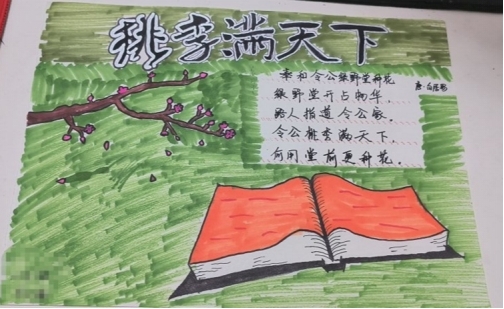 桃李满天下
奉和令公绿野堂种花
唐·白居易
绿野堂开占物华，
路人指道令公家。
令公桃李满天下，
何用堂前更种花。